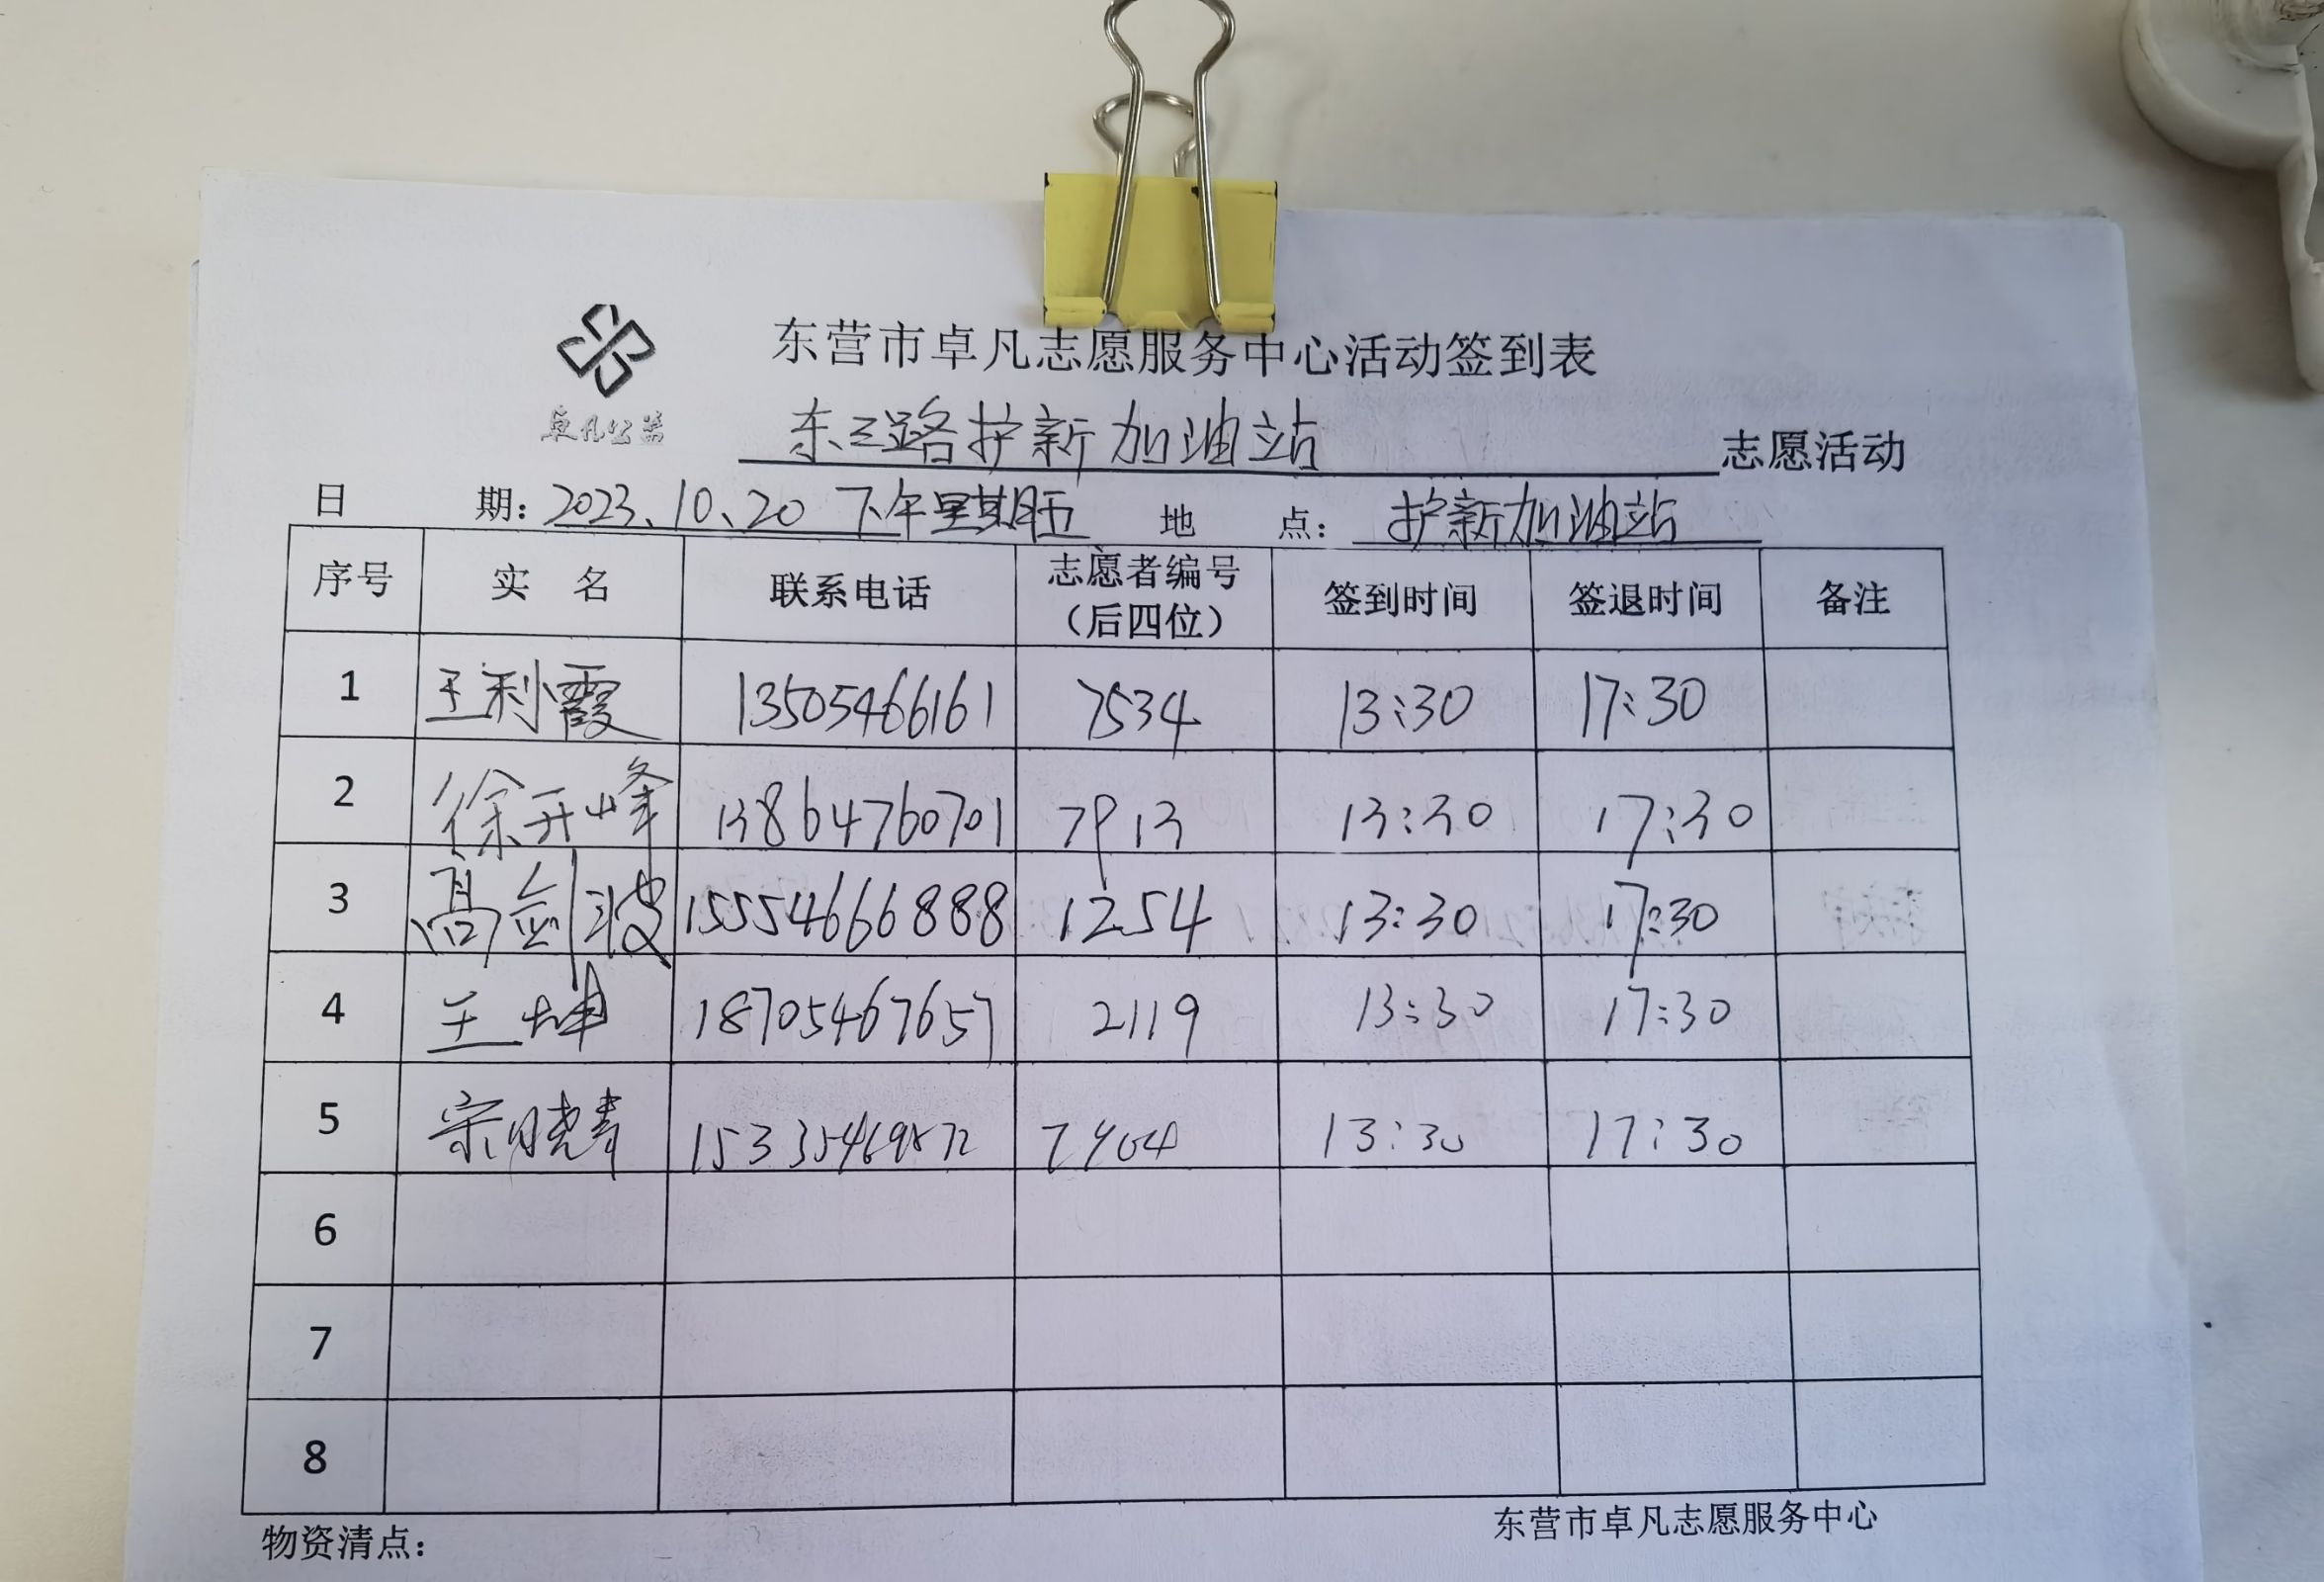 东营市卓凡志愿服务中心活动签到表
卓凡公益
东三路护新加油站 志愿活动
日 期: 2023、10、20 下午星期五 地 点: 护新加油站
序号 实 名 联系电话 志愿者编号（后四位） 签到时间 签退时间 备注
1 王利霞 13505466161 7534 13:30 17:30
2 徐开峰 13864760701 7913 13:30 17:30
3 高剑波 15554666888 1254 13:30 17:30
4 王坤 18705467657 2119 13:30 17:30
5 宋晓青 13:30 17:30
6
7
8
物资清点: 东营市卓凡志愿服务中心